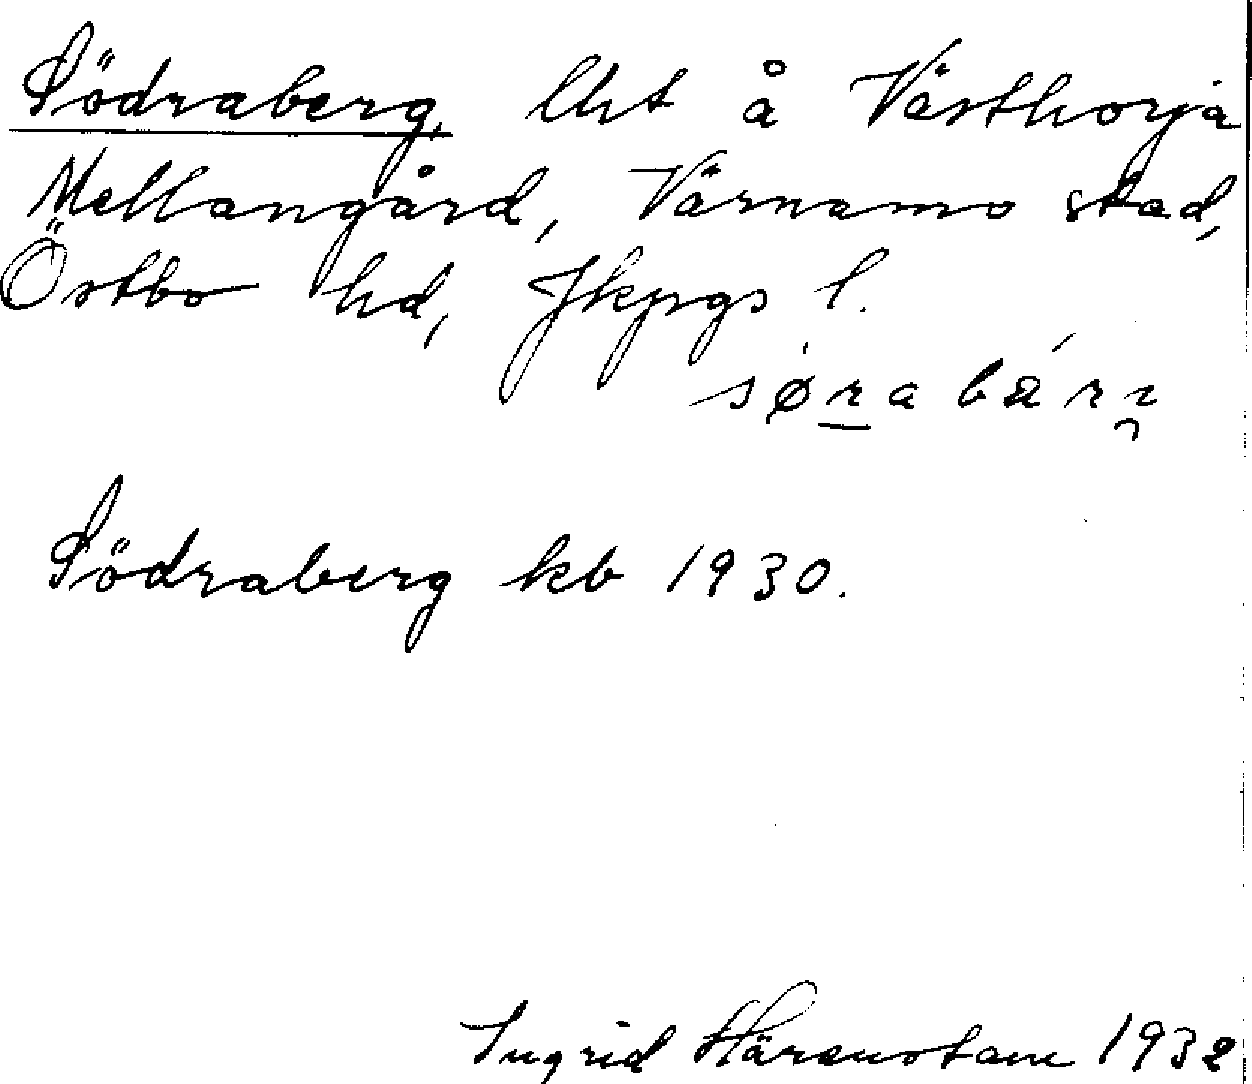 Södraberg, lht å Västhorja
Mellangård, Värnamo stad,
Östbo hd, Jkpgs l.
Södraberg kb 1930.
Ingrid Härenstam 1932